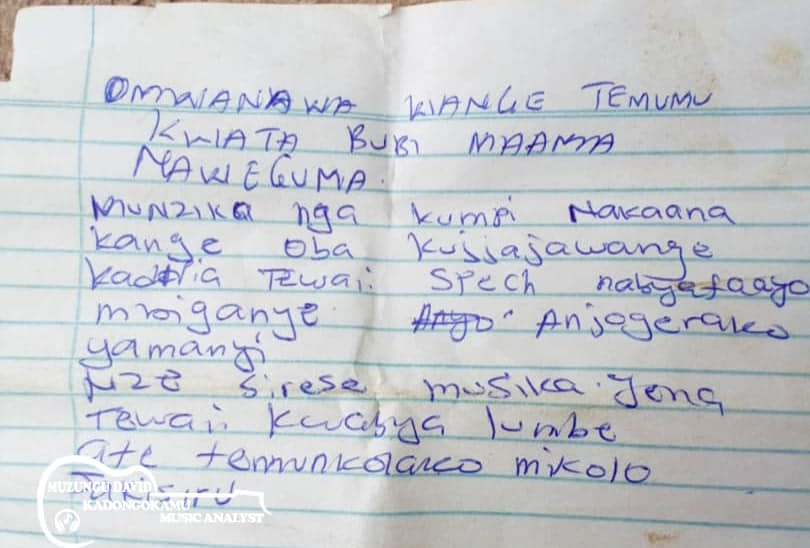 OMWANAWA KIANGE TEMUMU
KWATA BUBI MAAMA
NAWEGUMA.
MUNZIKA nga kumpi Nakaana
kange oba kujjajawange
kadria Tewai. Spech nabyafaayo
mbiganye Anyo Anjogerako
yamanyi
NZE sirese musika. Jena
Tewaji kwabya lumbe
ate temunkolako mikolo
MUZUNGU DAVID
KADONGOKAMU
MUSIC ANALYST